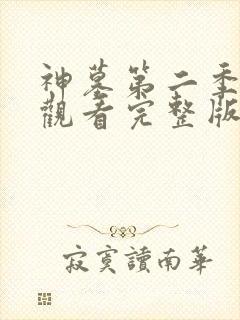 神墓第二季
觀看完整版
寂寞讀南華